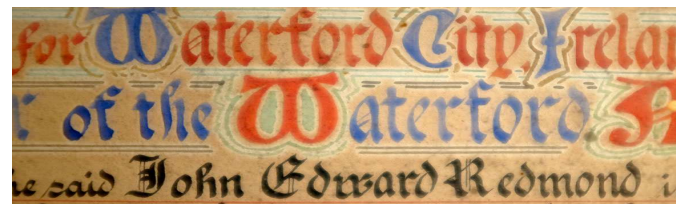 for Waterford City, Irelan
r of the Waterford
he said John Edward Redmond i